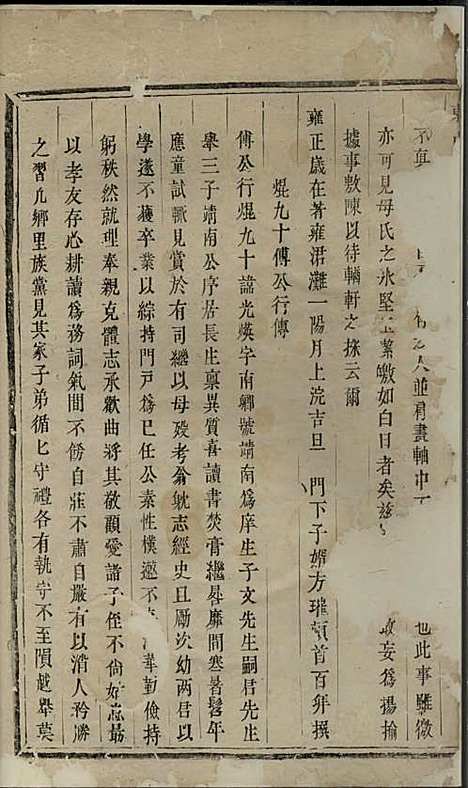 不
人並肩畫軸中
也此事雖微
亦可見母氏之氷堅玉潔皦如白日者矣茲
敢妄為揚揄
據事敷陳以待輶軒之採云爾
雍正歲在著雍涒灘一陽月上浣吉旦 門下子壻方璀頓首百拜撰
焜九十傅公行傳
傅公行焜九十諱光煐字南鄉號靖南為庠生子文先生嗣君先生
舉三子靖南公序居長生稟異質喜讀書焚膏繼晷靡間寒暑髫年
應童試輒見賞於有司繼以母歿考翁躭志經史且勵次幼兩君以
學遂不獲卒業以綜持門戸為己任公素性樸遬不華勤儉持
躬秩然就理奉親克體志承歡曲將其敬顧愛諸子侄不尚姑息最
以孝友存心耕讀為務詞氣間不傍自莊不肅自嚴有以消人矜勝
之習凢鄉里族黨見其家子弟循匕守禮各有執守不至隕越舉莫